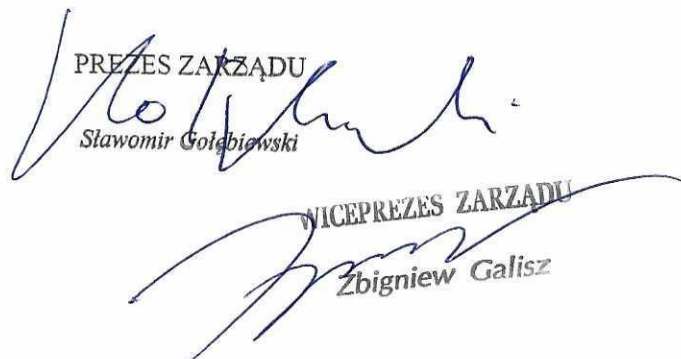 PREZES ZARZĄDU
Sławomir Gołębiowski
WICEPREZES ZARZĄDU
Zbigniew Galisz